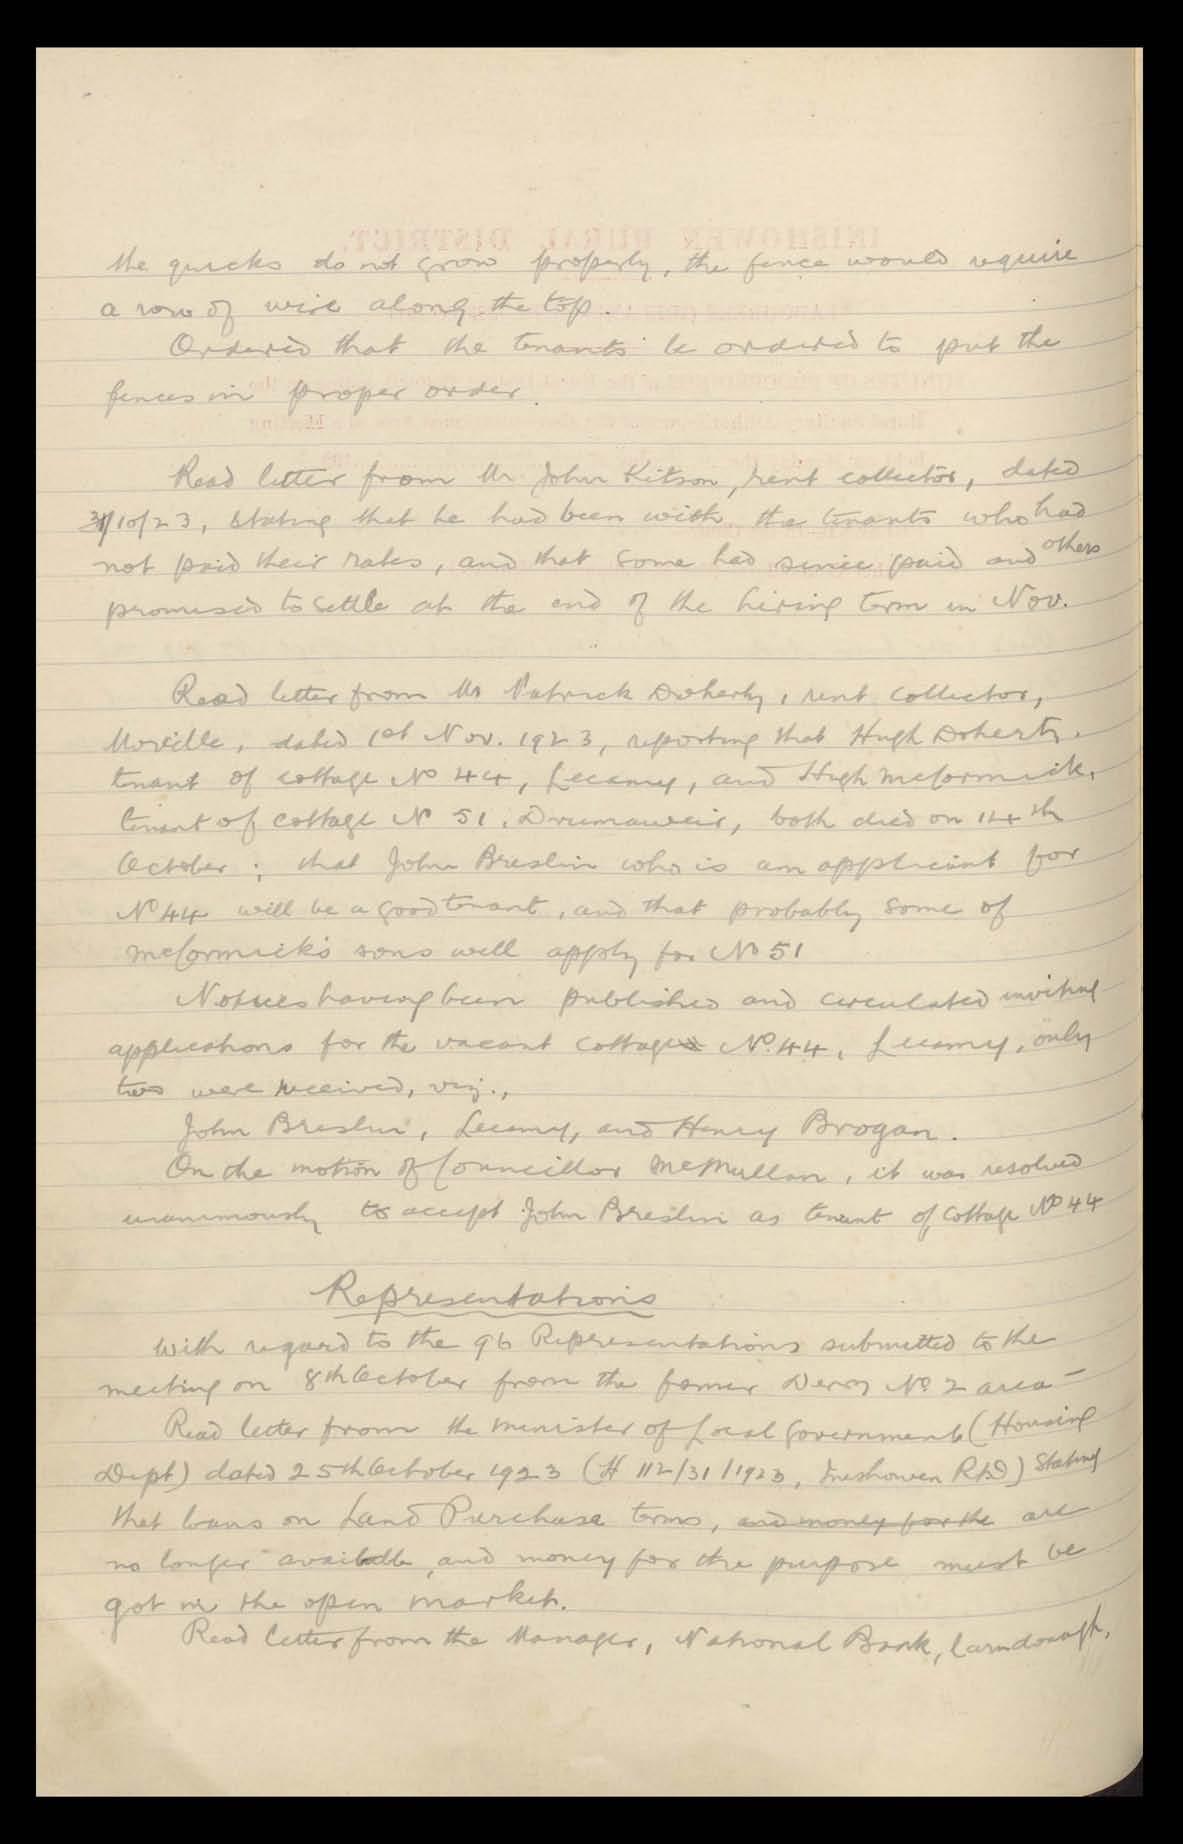 the quicks do not grow properly, the fence would require
a row of wire along the top.
Ordered that the tenants be ordered to put the
fences in proper order.
Read letter from Mr John Kitson, rent collector, dated
31/10/23, stating that he had been with the tenants who had
not paid their rates, and that some had since paid and others
promised to settle at the end of the hiring term in Nov.
Read letter from Mr Patrick Doherty, rent collector,
Moville, dated 1st Nov. 1923, reporting that Hugh Doherty,
tenant of cottage No 44, Lecamy, and Hugh McCormick,
tenant of cottage No 51, Drumaweir, both died on 14th
October; that John Breslin who is an applicant for
No 44 will be a good tenant, and that probably some of
McCormick's sons will apply for No 51
Notices having been published and circulated inviting
applications for the vacant cottage No. 44, Lecamy, only
two were received, viz.,
John Breslin, Lecamy, and Henry Brogan.
On the motion of Councillor McMullan, it was resolved
unanimously to accept John Breslin as tenant of Cottage No 44
Representations
With regard to the 96 Representations submitted to the
meeting on 8th October from the former Derry No. 2 area -
Read letter from the Minister of Local Government (Housing
Dept) dated 25th October 1923 (H 112/31/1923, Inishowen RD) stating
that loans on Land Purchase terms, and money for the are
no longer available, and money for the purpose must be
got in the open market.
Read letter from the Manager, National Bank, Carndonagh,